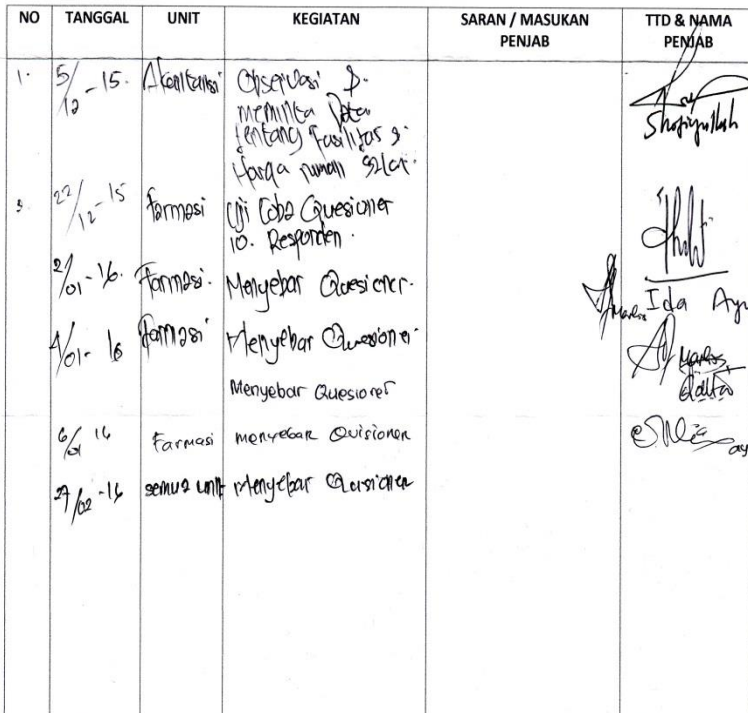 NO TANGGAL UNIT KEGIATAN SARAN / MASUKAN PENJAB TTD & NAMA PENJAB
1. 5/12 - 15. Observasi &
meminta Data
tentang Fasilitas &
Harga rumah
Shofiyullah
22/12 - 15 Farmasi Uji Coba Quesioner
10. Responden.
2/01 - 16. Farmasi. Menyebar Quesioner.
Ida Ayu
4/01 - 16 Farmasi Menyebar Quesioner
Menyebar Quesioner
6/01 16 Farmasi menyebar Quisioner
27/02 - 16 semua unit Menyebar Quesioner